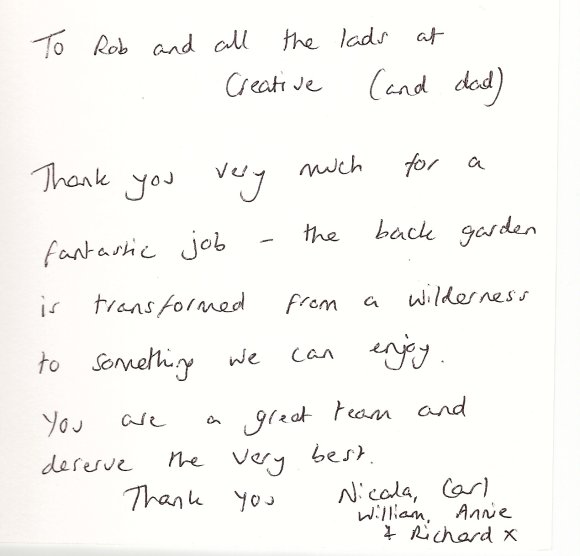 To Rob and all the lads at
Creative (and dad)
Thank you very much for a
fantastic job - the back garden
is transformed from a wilderness
to something we can enjoy.
You are a great team and
deserve the very best.
Thank you Nicola, Carl
William, Annie
& Richard x